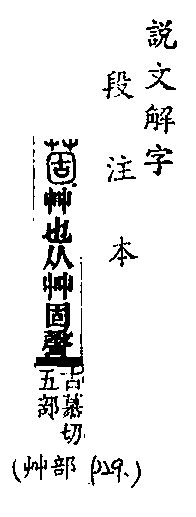 說文解字
段注本
䓢艸也从艸固聲
古慕切
五部
(艸部 p29.)